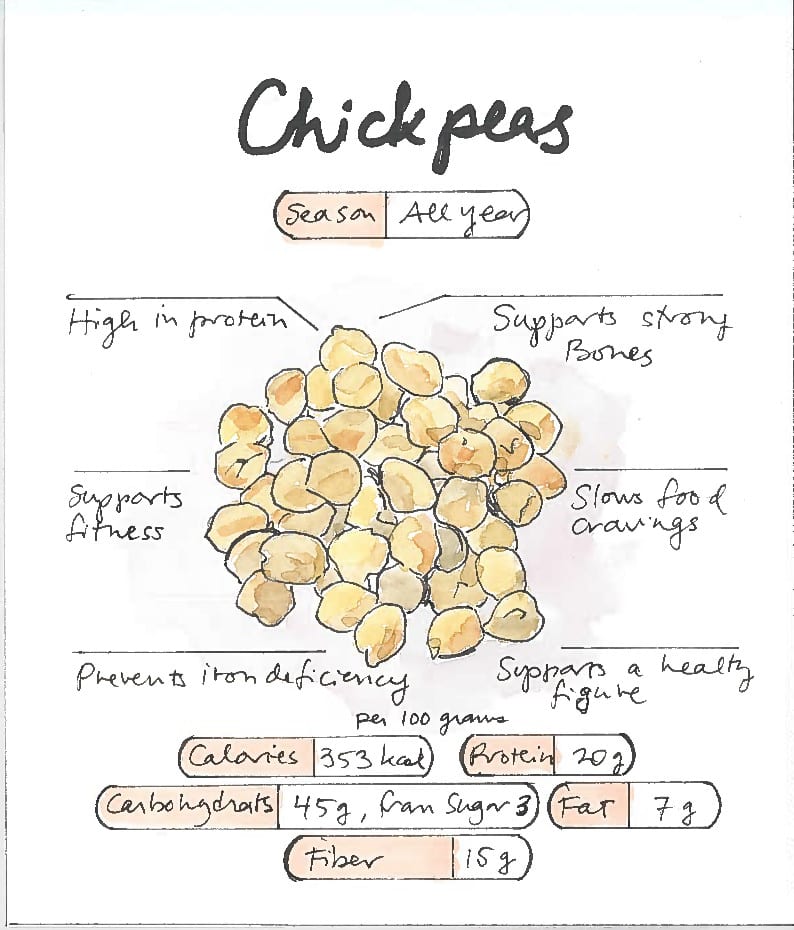 Chickpeas
Season All year
High in protein
Supports strong
Bones
Supports
fitness
Slows food
cravings
Prevents iron deficiency
Supports a healthy
figure
per 100 grams
Calories 353 kcal Protein 20g
Carbohydrats 45g, fran Sugar 3 Fat 7g
Fiber 15g